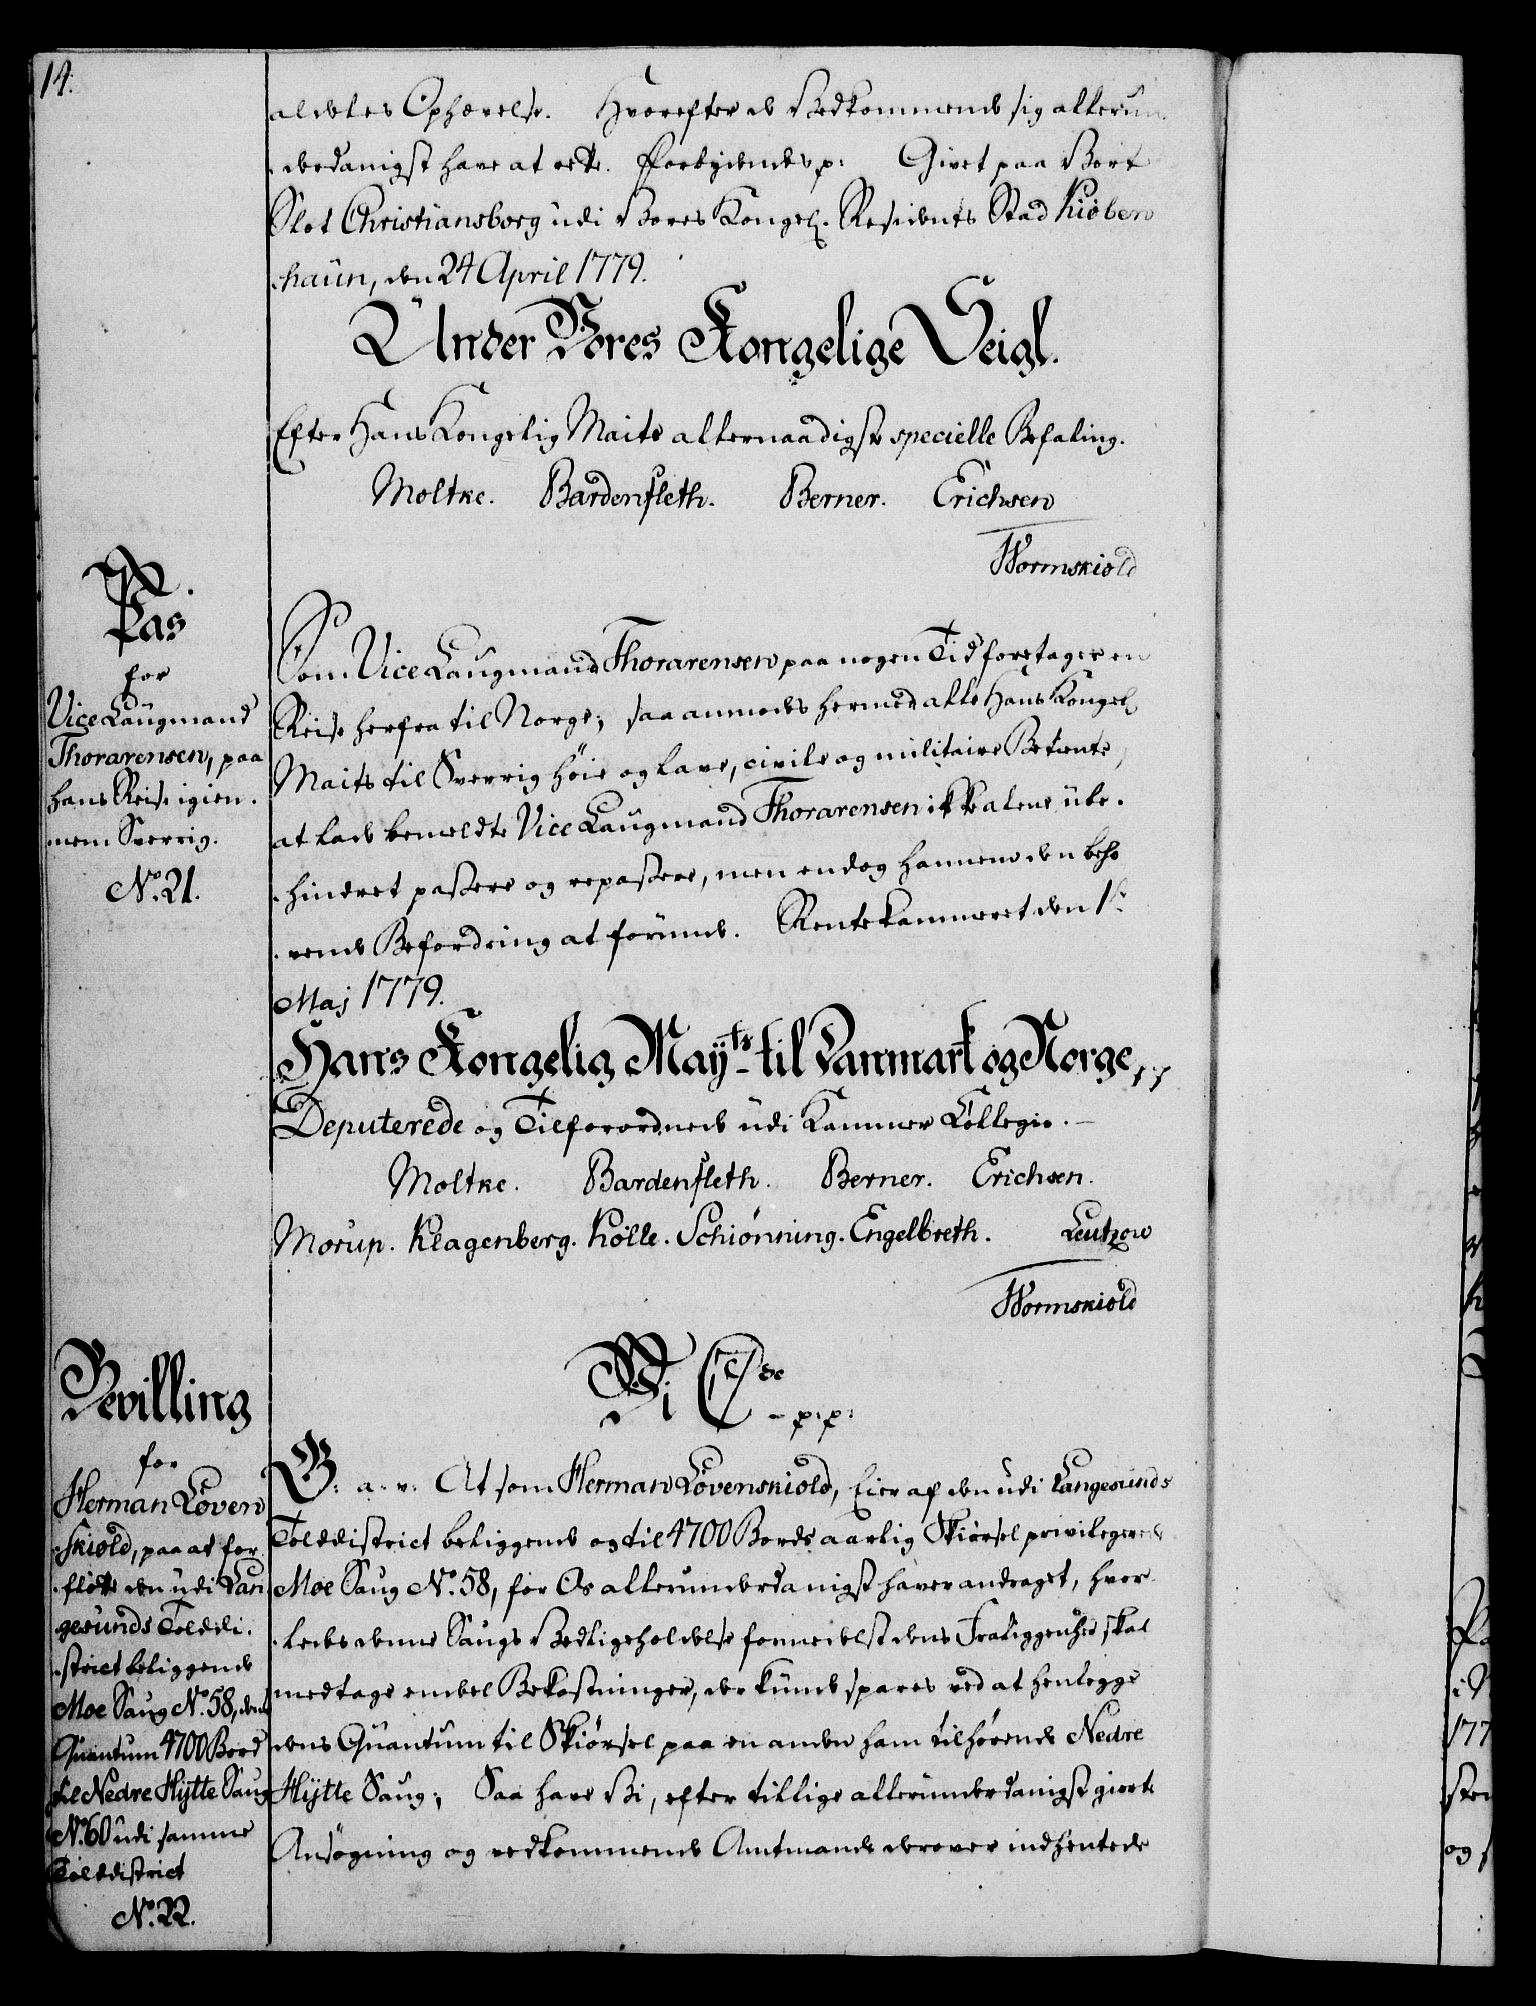 14.
aldeles Ophævelse. Hvorefter de Vedkommende sig allerun-
-derdanigst have at rette. Forbydendes p: Givet paa Vort
Slot Christiansborg udi Vores Kongel. Residents Stad Kiøben
-haun, den 24 April 1779.
Under Vores Kongelige Seigl.
Efter Hans Kongelig Maits allernaadigste specielle Befaling.
Moltke. Bardenfleth. Berner. Erichsen
Wormskiold
Pas
for
Vice Laugmand
Thorarensen, paa
hans Reise igien-
-nem Sverrig.
No. 21.
Som Vice Laugmand Thorarensen paa nogen Tid foretager en
Reise herfra til Norge; saa anmodes hermed alle Hans Kongel.
Maits til Sverrig höie og lave, civile og militaire Betiente,
at lade bemeldte Vice Laugmand Thorarensen ikke alene ube-
-hindret passere og repassere, men endog hannem den beho
-vende Befordring at forunde. Rentekammeret den 1ste
Maj 1779.
Hans Kongelig Mayts til Danmark og Norge, p p
Deputerede og Tilforordnede udi Kammer Collegio.
Moltke. Bardenfleth. Berner. Erichsen.
Morup. Klagenberg. Kölle. Schiönning. Engelbreth. Leutzow
Wormskiold
Bevilling
for
Herman Löven
-skiold, paa at for-
-flötte den udi Lan
gesunds Tolddi-
-strict beliggende
Moe Saug No. 58, dens
Quantum 4700 Bord
til Nedre Hijtte Saug
No. 60 udi samme
Tolddistrict
No. 22.
Vi C 7de - p: p:
G: a. v: At som Herman Lövenskiold, Eier af den udi Langesunds
Tolddistrict beliggende og til 4700 Bords aarlig Skiörsel privilegerede
Moe Saug No. 58, for Os allerunderdanigst haver andraget, hvor-
-ledes denne Saugs Vedligeholdelse formedelst dens Fraliggenhed skal
medtage endel Bekostninger, der kunde spares ved at henlegge
dens Quantum til Skiörsel paa en anden ham tilhörende Nedre
Hijtte Saug; Saa have Vi, efter tillige allerunderdanigst giorte
Ansögning og vedkommende Amtmands derover indhentede